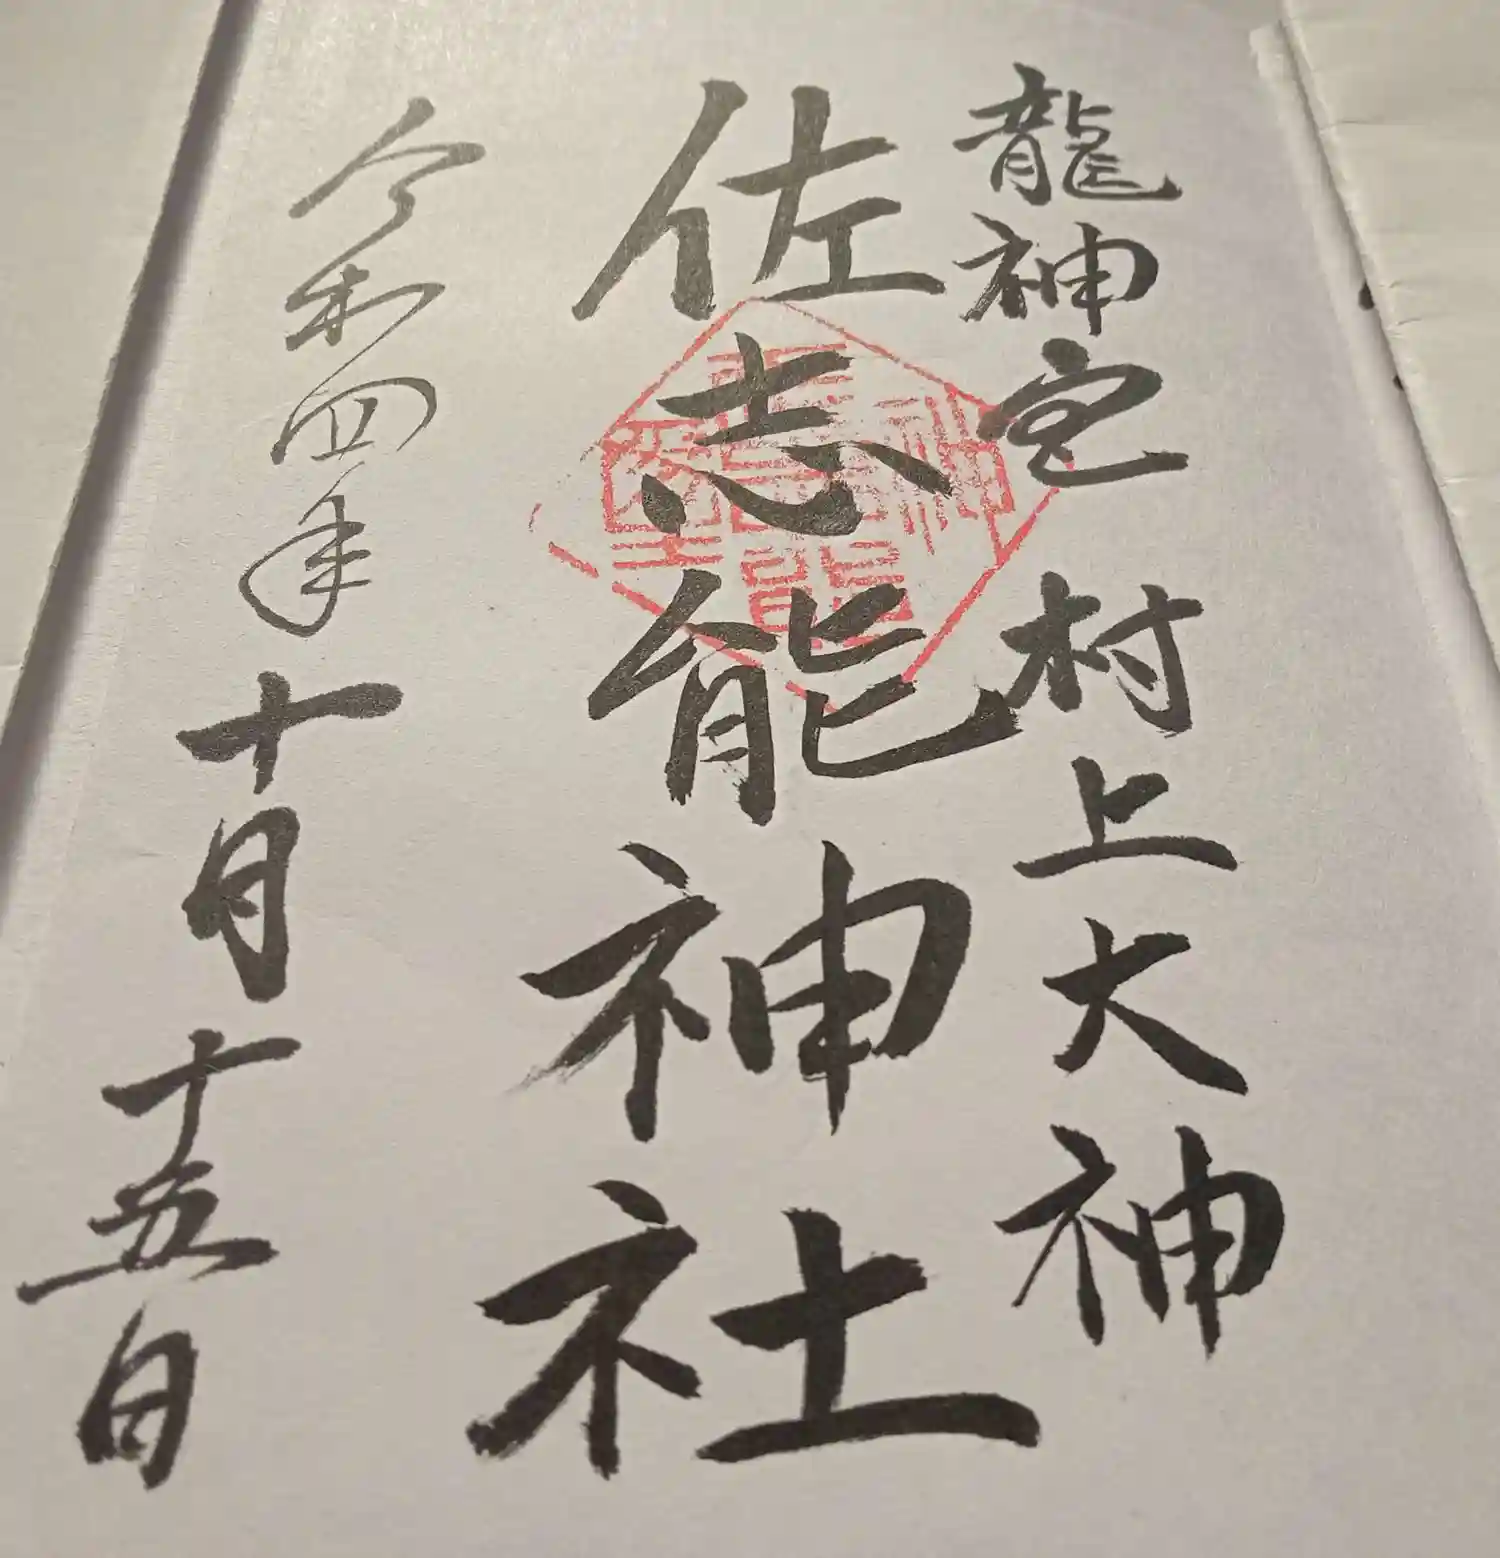 龍神宮 村上大神
佐志能神社
令和四年十月十五日